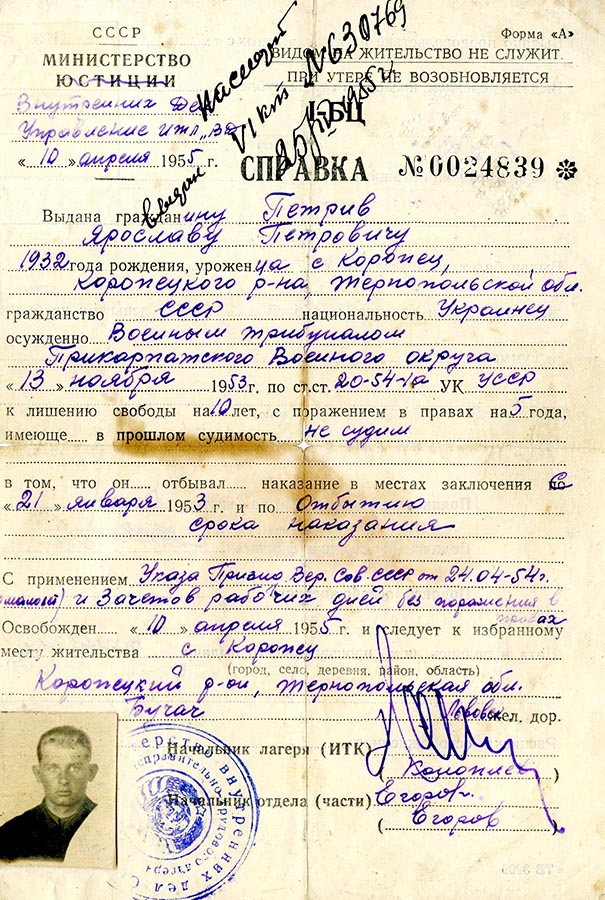 СССР
МИНИСТЕРСТВО
ЮСТИЦИИ
Внутренних Дел
Управление ИТЛ „ВД"
« 10 » апреля 1955 г.
Форма «А»
ВИДОМ НА ЖИТЕЛЬСТВО НЕ СЛУЖИТ.
ПРИ УТЕРЕ НЕ ВОЗОБНОВЛЯЕТСЯ
выдан паспорт
VI № 630769
1955 г.
1-БЦ
СПРАВКА №0024839 ✻
Выдана гражданину Петрив
Ярославу Петровичу
1932 года рождения, уроженца с Коропец,
Коропецкого р-на, Тернопольской обл.
гражданство СССР национальность Украинец
осужденно Военым трибуналом
Прикарпатского Военого округа
« 13 » ноября 1953 г. по ст.ст. 20-54-1а УК УССР
к лишению свободы на 10 лет, с поражением в правах на 5 года,
имеюще в прошлом судимость не судим
в том, что он отбывал наказание в местах заключения с
« 21 » января 1953 г. и по Отбытию
срока наказания
С применением Указа През. Вер. Сов. СССР от 24.04-54 г.
и Зачетов рабочих дней без поражения в
правах
Освобожден « 10 » апреля 1955 г. и следует к избранному
месту жительства с Коропец
(город, село, деревня, район, область)
Коропецкий р-он, Тернопольская обл.
Бучач Львовск. жел. дор.
Начальник лагеря (ИТК)
( )
Начальник отдела (части) Егоров
( Егоров )
Министерство внутренних дел
исправительно-трудового лагеря